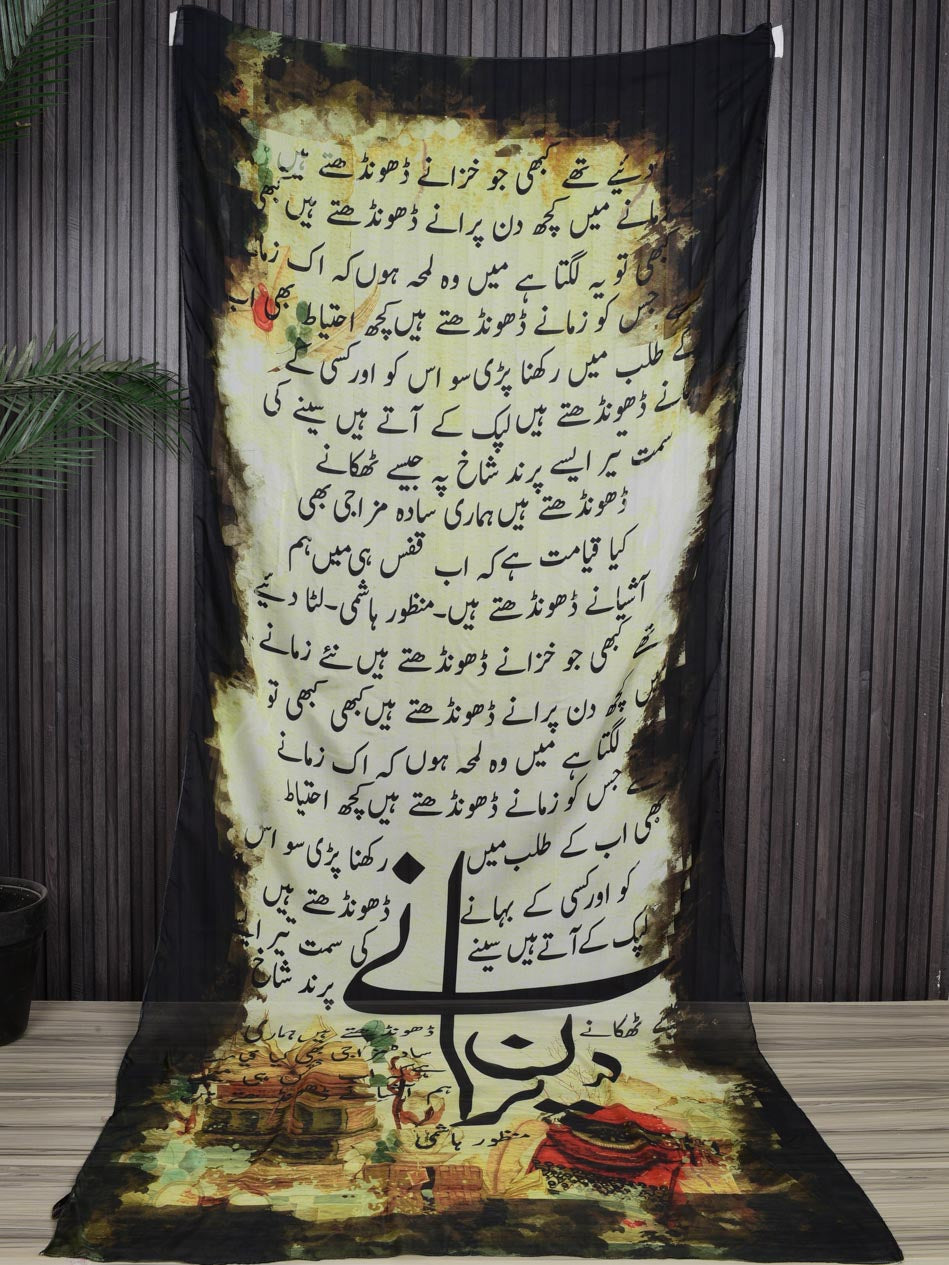 دئیے تھے کبھی جو خزانے ڈھونڈھتے ہیں
زمانے میں کچھ دن پرانے ڈھونڈھتے ہیں کبھی
کبھی تو یہ لگتا ہے میں وہ لمحہ ہوں کہ اک زمانے
سے جس کو زمانے ڈھونڈھتے ہیں کچھ احتیاط بھی اب
کے طلب میں رکھنا پڑی سو اس کو اور کسی کے
بہانے ڈھونڈھتے ہیں لپک کے آتے ہیں سینے کی
سمت تیر ایسے پرند شاخ پہ جیسے ٹھکانے
ڈھونڈھتے ہیں ہماری سادہ مزاجی بھی
کیا قیامت ہے کہ اب قفس ہی میں ہم
آشیانے ڈھونڈھتے ہیں۔ منظور ہاشمی۔ لٹا دئیے
تھے کبھی جو خزانے ڈھونڈھتے ہیں نئے زمانے
میں کچھ دن پرانے ڈھونڈھتے ہیں کبھی کبھی تو
لگتا ہے میں وہ لمحہ ہوں کہ اک زمانے
سے جس کو زمانے ڈھونڈھتے ہیں کچھ احتیاط
بھی اب کے طلب میں رکھنا پڑی سو اس
کو اور کسی کے بہانے ڈھونڈھتے ہیں
لپک کے آتے ہیں سینے کی سمت تیر
پرند شاخ
ٹھکانے ڈھونڈھتے ہیں ہماری
دن پرانے
منظور ہاشمی